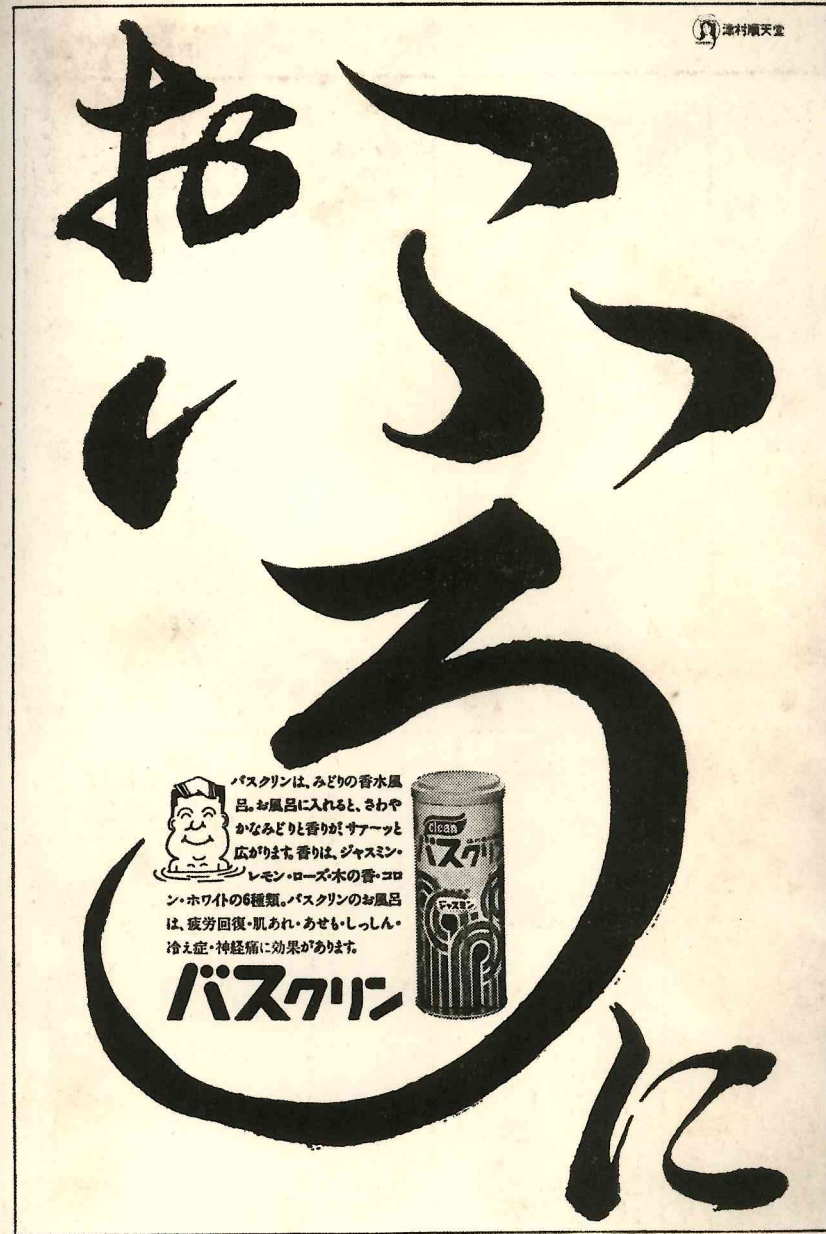 津村順天堂
おふろに
バスクリンは、みどりの香水風
呂。お風呂に入れると、さわや
かなみどりと香りが、サァ〜ッと
広がります。香りは、ジャスミン・
レモン・ローズ・木の香・コロ
ン・ホワイトの6種類。バスクリンのお風呂
は、疲労回復・肌あれ・あせも・しっしん・
冷え症・神経痛に効果があります。
バスクリン
clean
バスクリン
ジャスミン